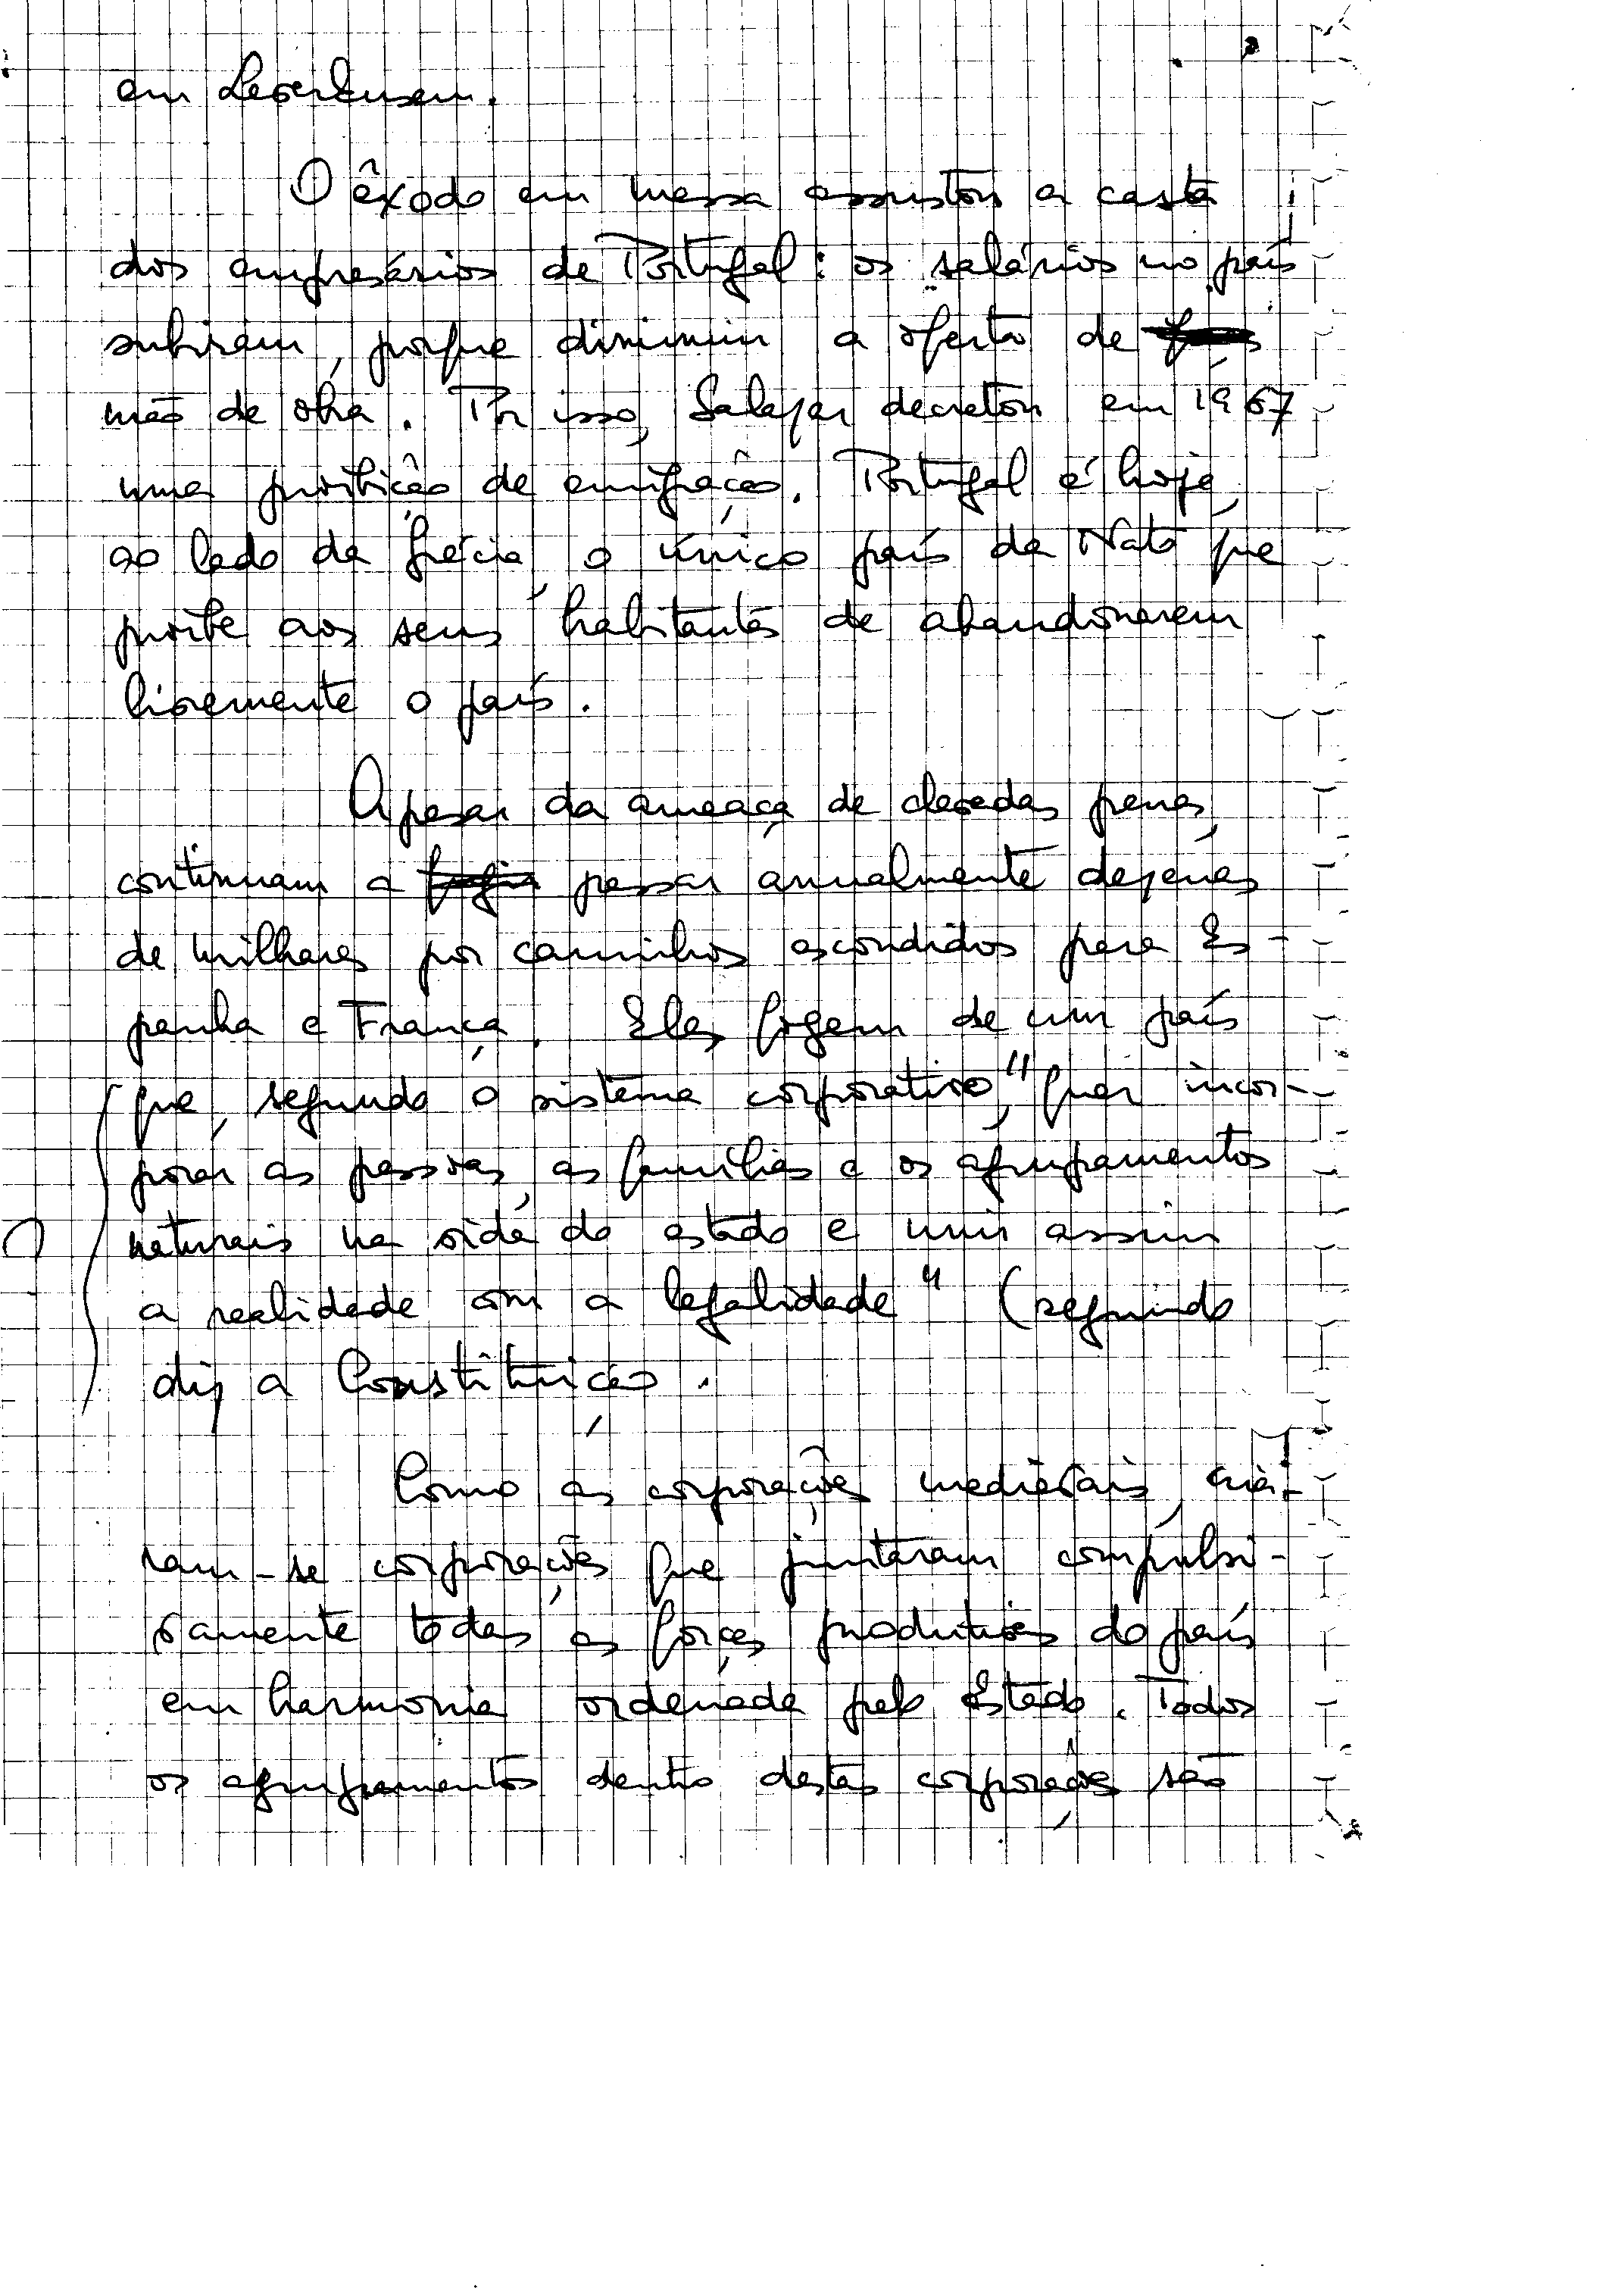 em Leverkusen.
O êxodo em massa assustou a casta
dos empresários de Portugal: os salários no país
subiram, porque diminuiu a oferta de
mão de obra. Por isso, Salazar decretou em 1967
uma proibição de emigração. Portugal é hoje,
ao lado da Grécia, o único país da Nato que
proíbe aos seus habitantes de abandonarem
livremente o país.
Apesar da ameaça de elevadas penas,
continuam a passar anualmente dezenas
de milhares por caminhos escondidos para Es-
panha e França. Eles fogem de um país
que, segundo o sistema corporativo, "quer incor-
porar as pessoas, as famílias e os agrupamentos
naturais na vida do estado e unir assim
a realidade com a legalidade" (segundo
diz a Constituição.
Como as corporações medievais, cria-
ram-se corporações que juntaram compulsi-
vamente todas as forças produtivas do país
em harmonia ordenada pelo Estado. Todos
os agrupamentos dentro destas corporações são